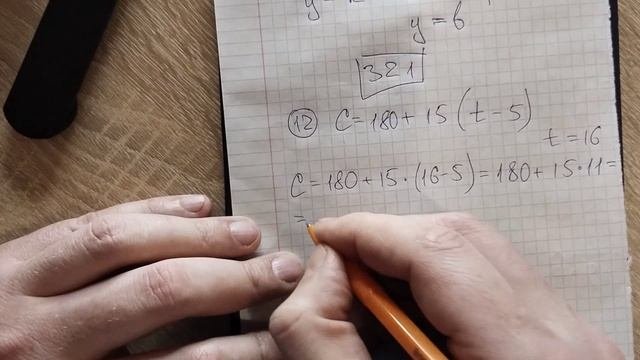 y = 6
321
12 C = 180 + 15 (t - 5)
t = 16
C = 180 + 15 · (16 - 5) = 180 + 15 · 11 =
=